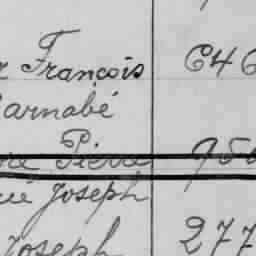 François 646
Barnabé
Pierre 950
Joseph
Joseph 277